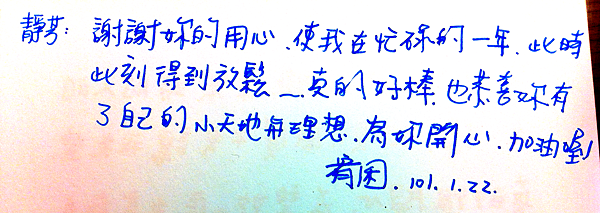 靜芬：謝謝妳的用心、使我在忙碌的一年、此時
此刻得到放鬆～真的好棒、也恭喜妳有
了自己的小天地與理想、為妳開心、加油喔！
101.1.22.